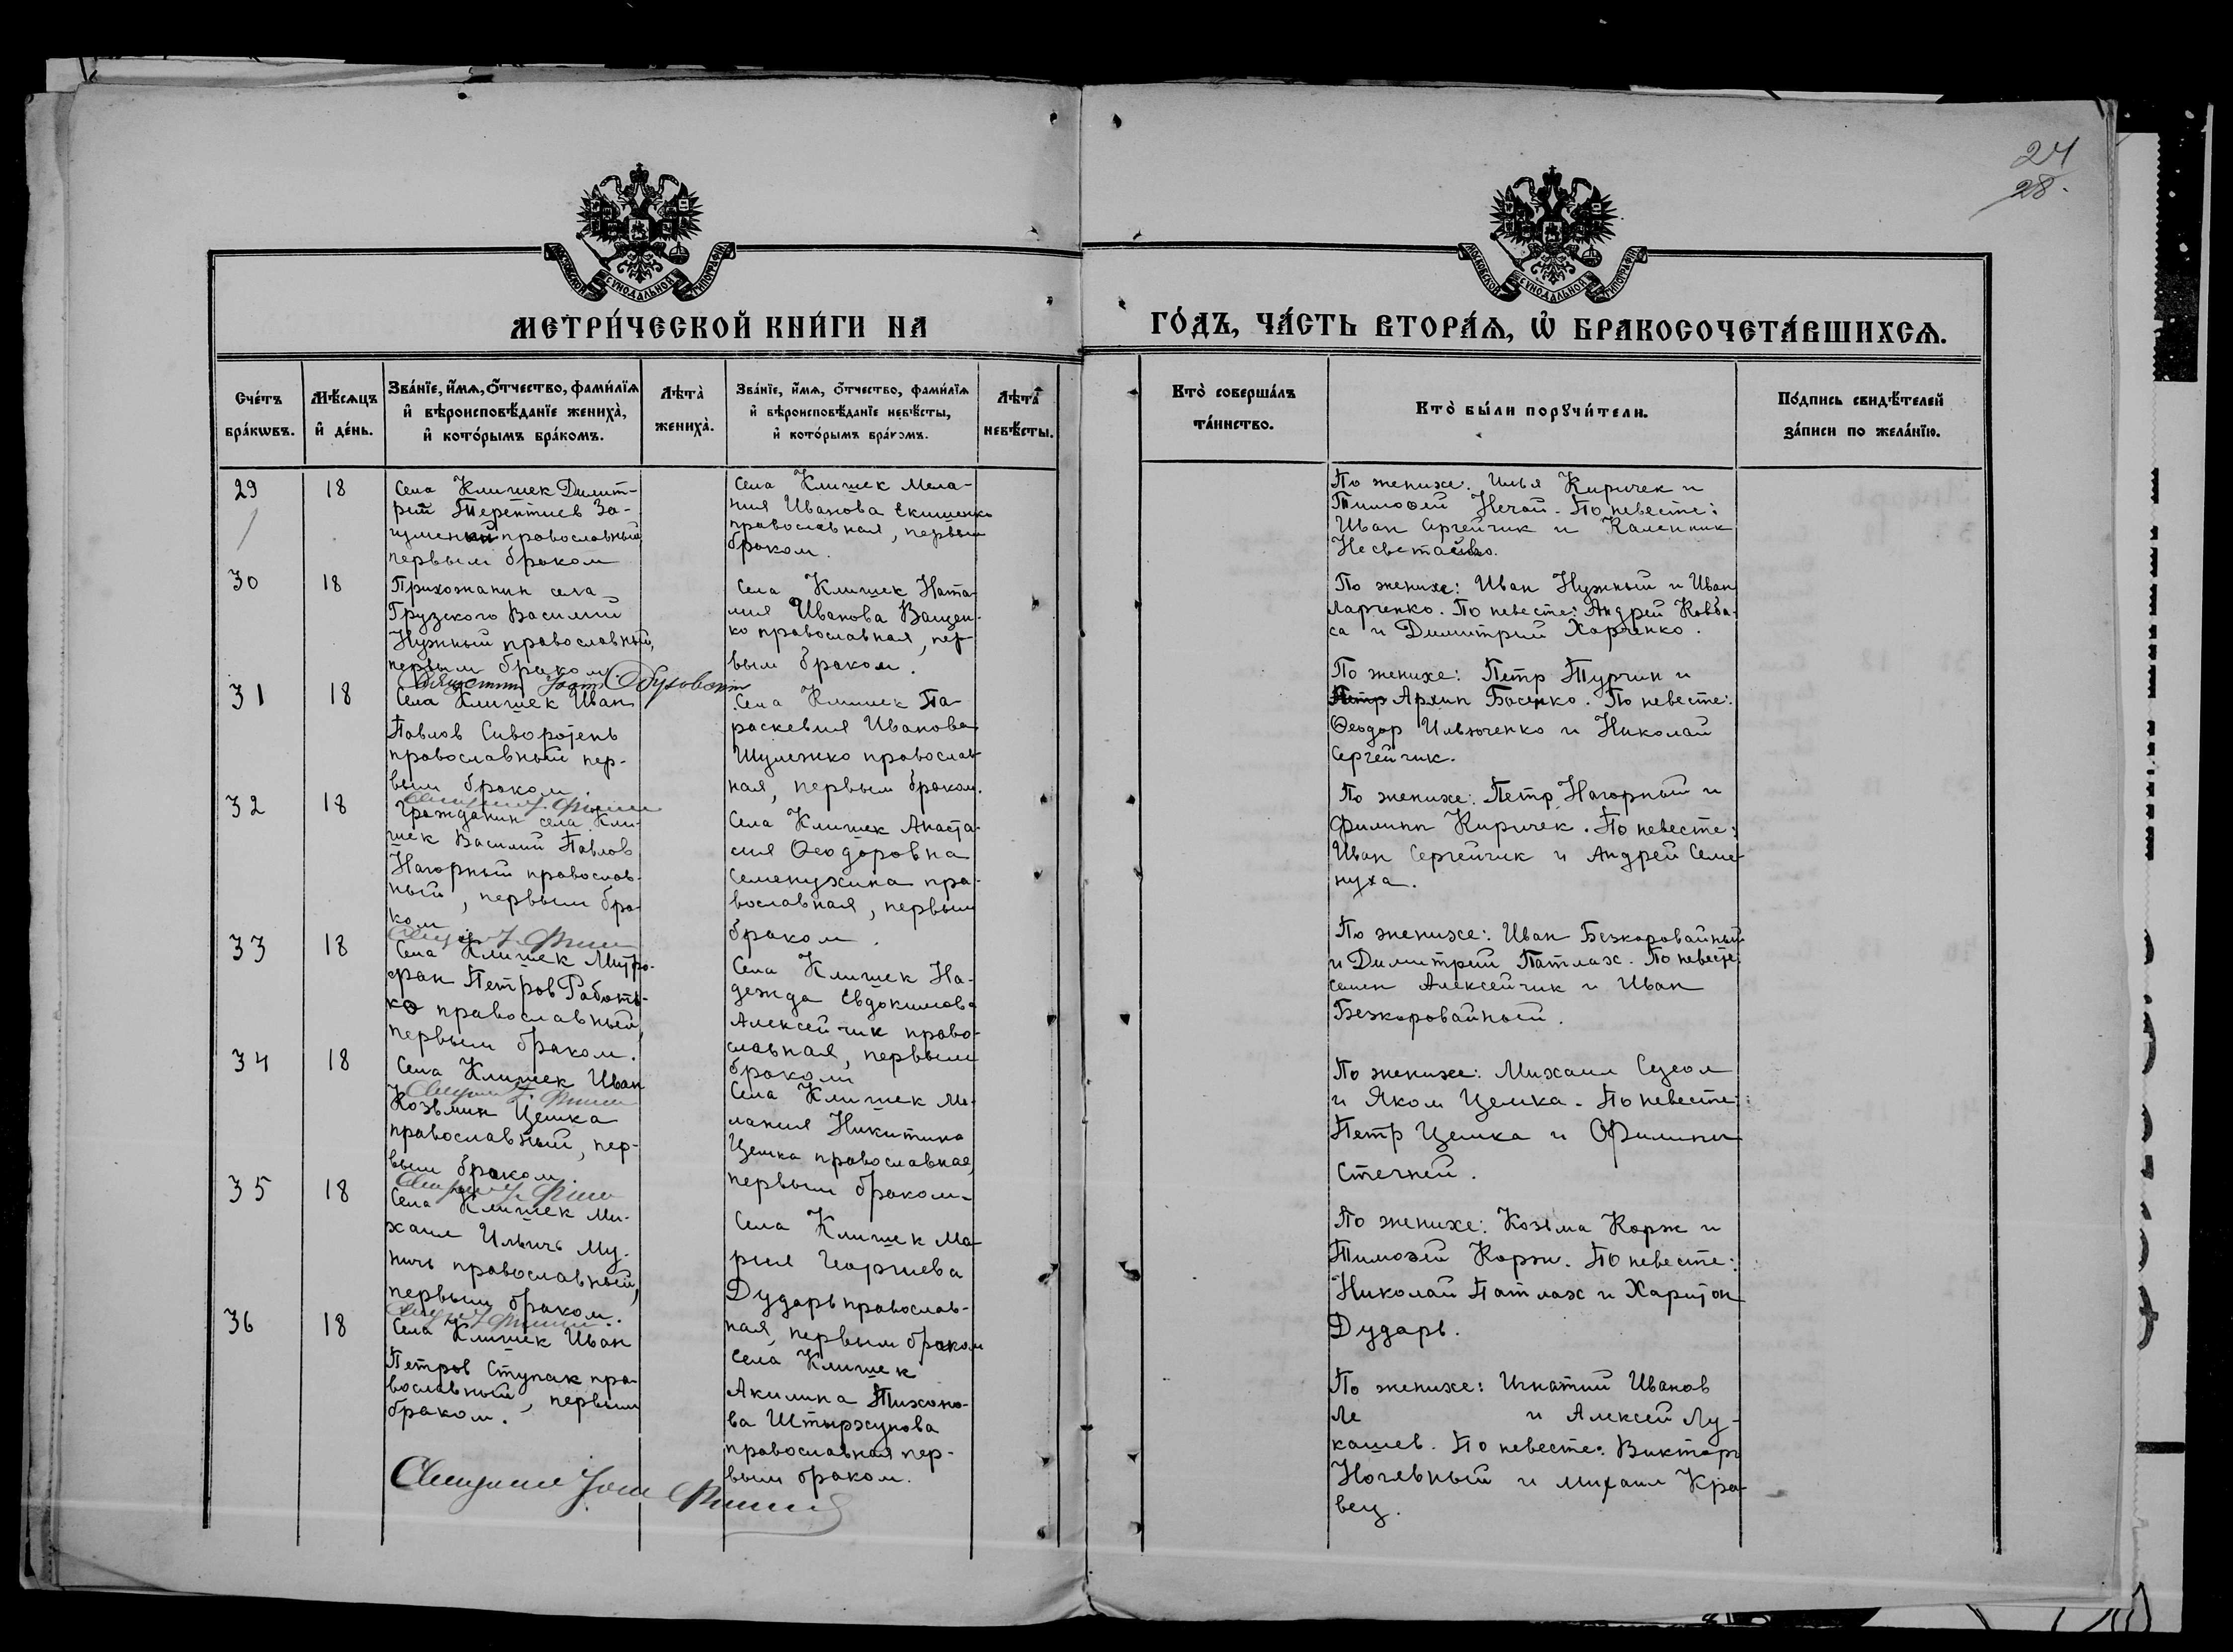 24
28.
МОСКОВСКОЙ СѴНОДАЛЬНОЙ ТИПОГРАФІИ
МОСКОВСКОЙ СѴНОДАЛЬНОЙ ТИПОГРАФІИ
МЕТРИ́ЧЕСКОЙ КНИ́ГИ НА
ГО́ДЪ, ЧА́СТЬ ВТОРА́Ѧ, Ѽ БРАКОСОЧЕТА́ВШИХСѦ.
Сче́тъ
бра́кѡвъ.
Мѣ́сѧцъ
и҆ де́нь.
Зва́нїе, и҆́мѧ, ѻ҆́тчество, фами́лїѧ
и҆ вѣроисповѣ́данїе жениха̀,
и҆ кото́рымъ бра́комъ.
Лѣ́та
жениха̀.
Зва́нїе, и҆́мѧ, ѻ҆́тчество, фами́лїѧ
и҆ вѣроисповѣ́данїе невѣ́сты,
и҆ кото́рымъ бра́комъ.
Лѣ́та
невѣ́сты.
Кто̀ соверша́лъ
та́инство.
Кто̀ бы́ли порꙋчи́тели.
По́дпись свидѣ́телей
за́писи по жела́нїю.
29
18
Села Клишек Димит-
рий Терентиев За-
православный
первым браком
Села Клишек Мела-
ния Иванова Екименко
православная, первым
браком.
По женихе: Илья Киричек и
Тимофей Нечай. По невесте:
Иван Сергейчик и Каленник
30
18
Прихожанин села
Грузского Василий
Нужный православный,
первым браком
Села Клишек Ната-
лия Иванова Ващен-
ко православная, пер-
вым браком.
По женихе: Иван Нужный и Иван
Ларченко. По невесте: Андрей Ковба-
са и Димитрий Харченко.
31
18
Села Клишек Иван
Павлов Сиворотень
православный пер-
вым браком.
Села Клишек Па
раскевия Иванова
Шулежко православ-
ная, первым браком.
По женихе: Петр Турчин и
Петр Архип Басенко. По невесте:
Ѳеодор Ильюченко и Николай
Сергейчик.
32
18
Гражданин села Кли-
шек Василий Павлов
Нагорный православ-
ный, первым бра-
ком
Села Клишек Анаста-
сия Ѳеодоровна
Семенухина пра-
вославная, первым
браком.
По женихе: Петр Нагорный и
Филипп Киричек. По невесте:
Иван Сергейчик и Андрей Семе-
нуха.
33
18
Села Клишек Митро-
фан Петров Работь-
ко православный,
первым браком.
Села Клишек На-
дежда Евдокимова
Алексейчик право-
славная, первым
браком
По женихе: Иван Безкоровайный
и Димитрий Патлах. По невесте:
Семен Алексейчик и Иван
Безкоровайный.
34
18
Села Клишек Иван
Козьмин Цешка
православный, пер-
вым браком.
Села Клишек Ме-
лания Никитина
Цешка православная,
первым браком.
По женихе: Михаил
и Яков Цешка. По невесте:
Петр Цешка и Филипп
35
18
Села Клишек Ми-
хаил Ильичь Му-
ничь православный,
первым браком.
Села Клишек Ма-
рия Георгиева
Дударь православ-
ная, первым браком
По женихе: Козьма Корж и
Тимофей Корж. По невесте:
Николай Патлах и Харитон
Дударь.
36
18
Села Клишек Иван
Петров Ступак пра-
вославный, первым
браком.
Села Клишек
Акилина Тихоно-
ва Штырхунова
православная пер-
вым браком.
По женихе: Игнатий Иванов
Ле и Алексей Лу-
кашев. По невесте: Виктор
Ночевный и Михаил Кра-
вец.